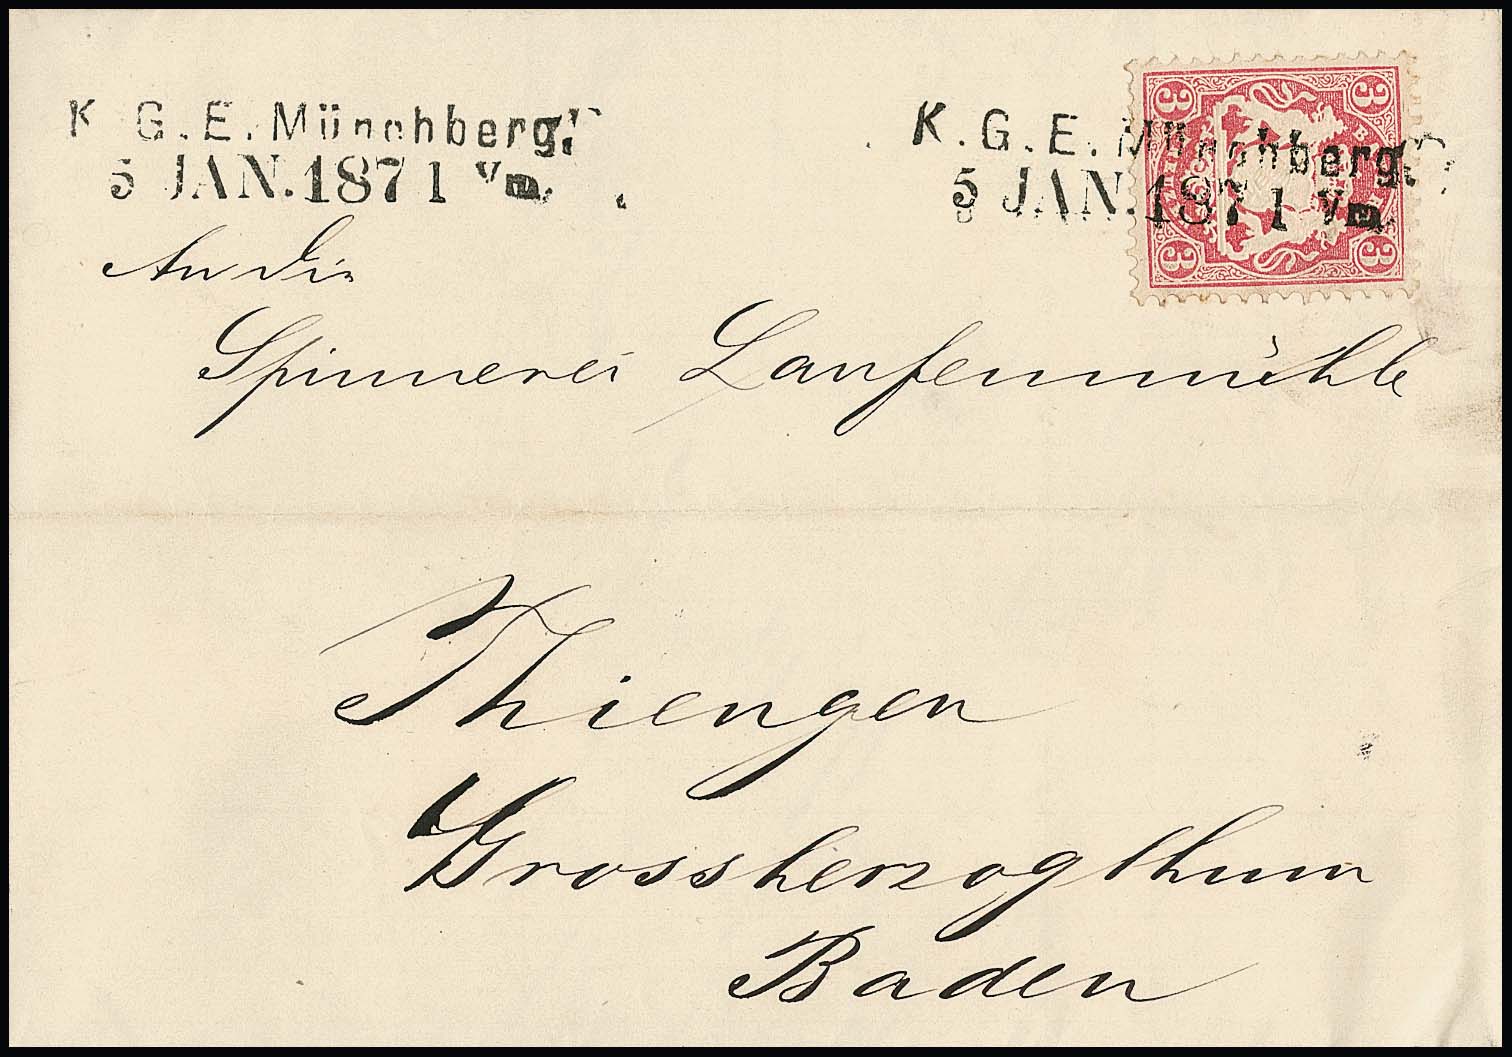 K. G. E. Münchberg.
5 JAN. 1871 Vm.
K. G. E. Münchberg.
5 JAN. 1871 Vm.
3 3
3 3
An die
Spinnerei Laufenmühle
Thiengen
Grossherzogthum
Baden